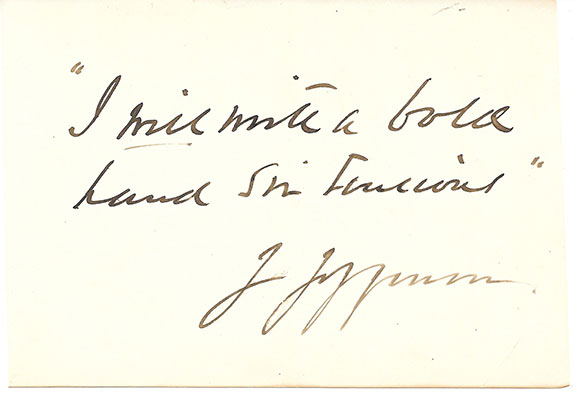 "I will write a bold
hand Sir Lucius"
J Jefferson